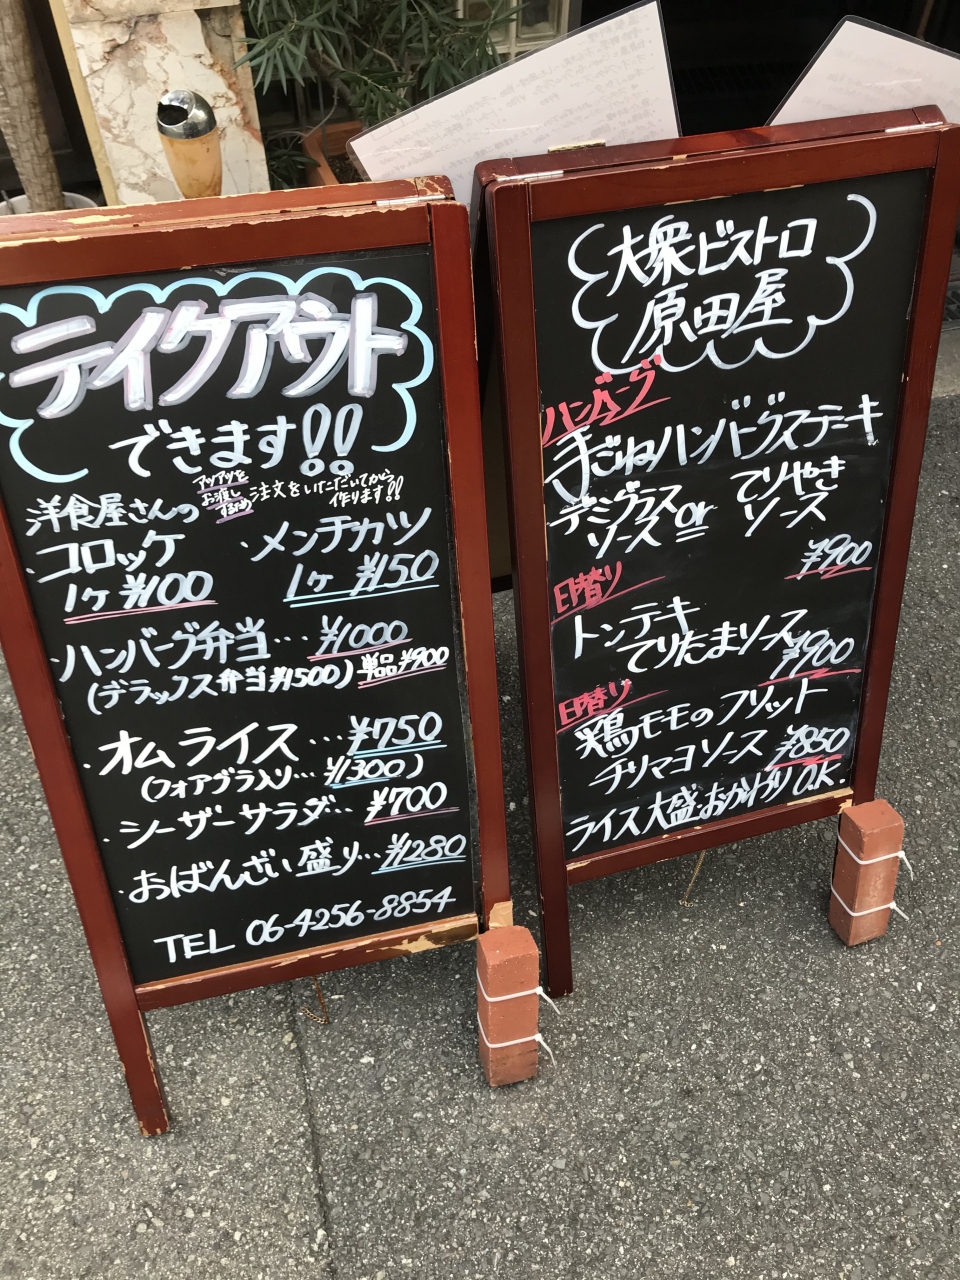 テイクアウト
できます!!
アツアツを
お渡し
するため
注文をいただいてから
作ります!!
洋食屋さんの
コロッケ
1ヶ ¥100
・メンチカツ
1ヶ ¥150
・ハンバーグ弁当…¥1000
(デラックス弁当¥1500) 単品¥900
・オムライス…¥750
(フォアグラ入り…¥1300)
・シーザーサラダ…¥700
・おばんざい盛り…¥1280
TEL 06-4256-8854
大衆ビストロ
原田屋
ハンバーグ
手ごねハンバーグステーキ
デミグラス
ソース or てりやき
ソース
¥900
日替り
トンテキ
てりたまソース
¥900
日替り
鶏モモのフリット
チリマヨソース ¥850
ライス大盛・おかわりO.K.